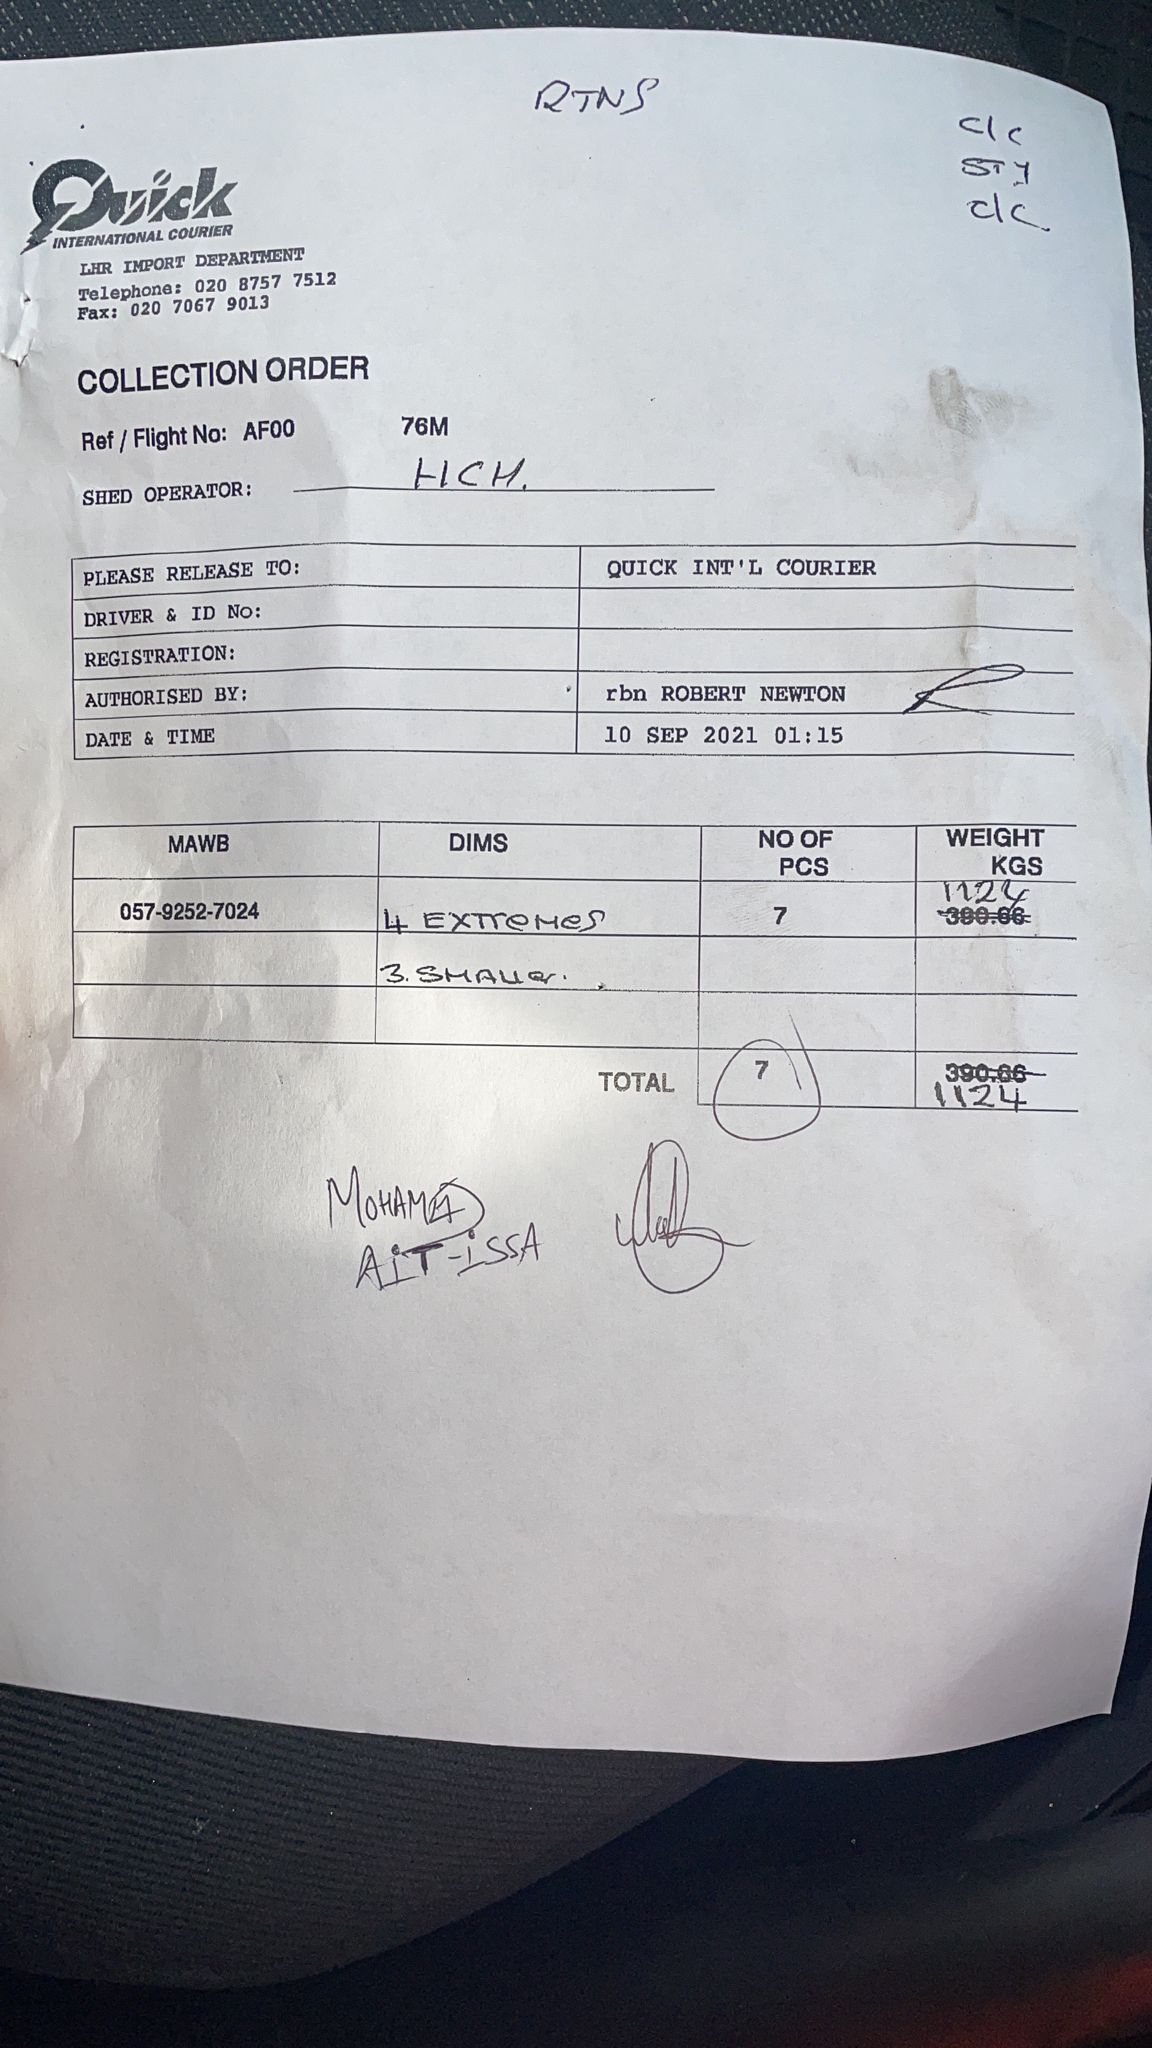 RTNS
c/c
STY
c/c
Quick
INTERNATIONAL COURIER
LHR IMPORT DEPARTMENT
Telephone: 020 8757 7512
Fax: 020 7067 9013
COLLECTION ORDER
Ref / Flight No: AF00 76M
SHED OPERATOR: HCH.
PLEASE RELEASE TO: QUICK INT'L COURIER
DRIVER & ID No:
REGISTRATION:
AUTHORISED BY: rbn ROBERT NEWTON
DATE & TIME 10 SEP 2021 01:15
MAWB DIMS NO OF PCS WEIGHT KGS
1124
057-9252-7024 4 EXTREMES 7
3. SMALLER.
TOTAL 7
1124
MOHAMED
AIT-ISSA